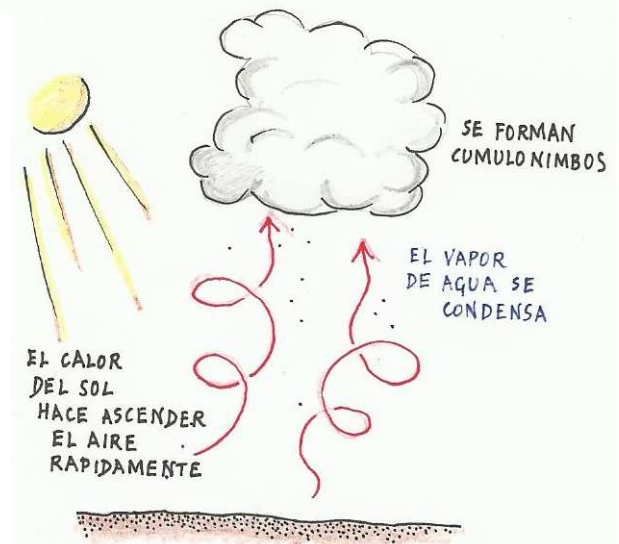 SE FORMAN
CUMULONIMBOS
EL VAPOR
DE AGUA SE
CONDENSA
EL CALOR
DEL SOL
HACE ASCENDER
EL AIRE
RAPIDAMENTE